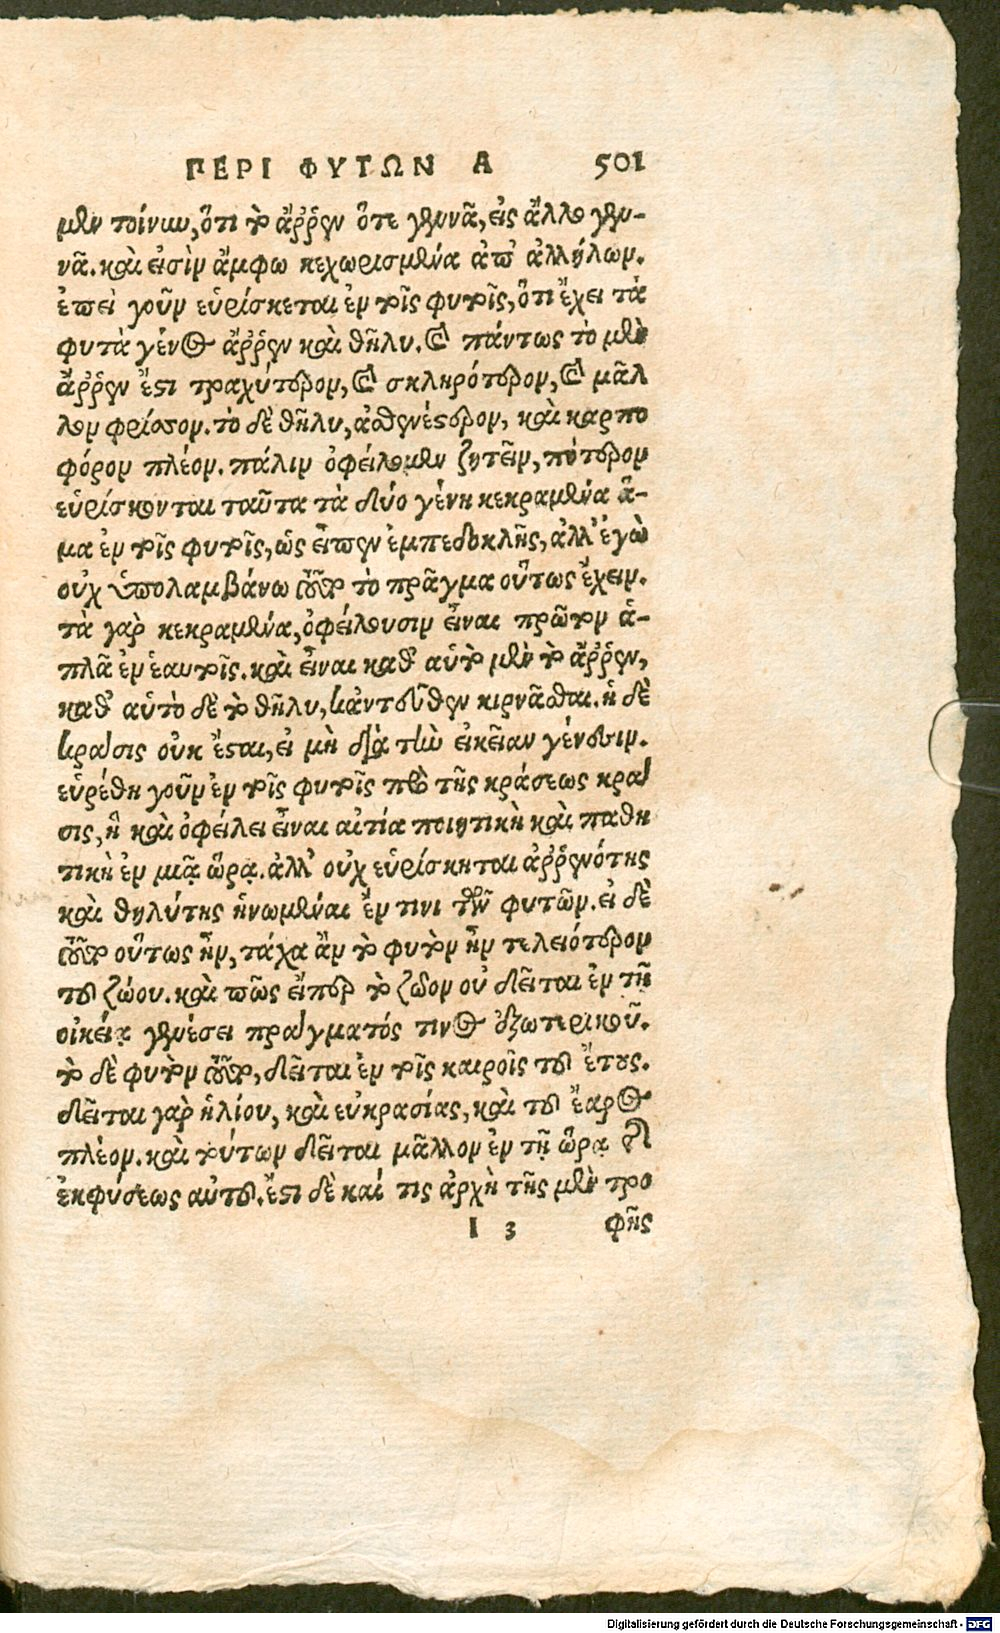 ΠΕΡΙ ΦΥΤΩΝ Α 501
μὲν τοίνυν, ὅτι τὸ ἄῤῥεν ὅτε γεννᾷ, εἰς ἄλλο γεν-
νᾷ. καὶ εἰσὶν ἄμφω κεχωρισμένα ἀπ' ἀλλήλων.
ἐπεὶ γοῦν εὑρίσκεται ἐν τοῖς φυτοῖς, ὅτι ἔχει τὰ
φυτὰ γένος ἄῤῥεν καὶ θῆλυ. καὶ πάντως τὸ μὲν
ἄῤῥεν ἔστι τραχύτερον, καὶ σκληρότερον, καὶ μᾶλ
λον φρίσσον. τὸ δὲ θῆλυ, ἀσθενέστερον, καὶ καρπο
φόρον πλέον. πάλιν ὀφείλομεν ζητεῖν, πότερον
εὑρίσκονται ταῦτα τὰ δύο γένη κεκραμένα ἅ-
μα ἐν τοῖς φυτοῖς, ὡς εἶπεν ἐμπεδοκλῆς, ἀλλ' ἐγὼ
οὐχ ὑπολαμβάνω τοῦτο τὸ πρᾶγμα οὕτως ἔχειν.
τὰ γὰρ κεκραμένα, ὀφείλουσιν εἶναι πρῶτον ἁ-
πλᾶ ἐν ἑαυτοῖς. καὶ εἶναι καθ' αὑτὸ μὲν τὸ ἄῤῥεν,
καθ' αὑτὸ δὲ τὸ θῆλυ, κἀντεῦθεν κιρνᾶσθαι. ἡ δὲ
κρᾶσις οὐκ ἔσται, εἰ μὴ διὰ τὴν εἰκείαν γένεσιν.
εὑρέθη γοῦν ἐν τοῖς φυτοῖς πρὸ τῆς κράσεως κρα
σις, ἢ καὶ ὀφείλει εἶναι αἰτία ποιητικὴ καὶ παθη
τικὴ ἐν μιᾷ ὥρᾳ. ἀλλ' οὐχ εὑρίσκηται ἀῤῥενότης
καὶ θηλύτης ἡνωμέναι ἔν τινι τῶν φυτῶν. εἰ δὲ
τοῦτο οὕτως ἦν, τάχα ἂν τὸ φυτὸν ἦν τελειότερον
τοῦ ζώου. καὶ πῶς εἴπερ τὸ ζῶον οὐ δεῖται ἐν τῇ
οἰκείᾳ γενέσει πράγματός τινος ἐξωτερικοῦ.
τὸ δὲ φυτὸν τοῦτο, δεῖται ἐν τοῖς καιροῖς τοῦ ἔτους.
δεῖται γὰρ ἡλίου, καὶ εὐκρασίας, καὶ τοῦ ἔαρος
πλέον. καὶ τούτων δεῖται μᾶλλον ἐν τῇ ὥρᾳ τῆς
ἐκφύσεως αὐτοῦ. ἔστι δὲ καί τις ἀρχὴ τῆς μὲν τρο
I 3 φῆς
Digitalisierung gefördert durch die Deutsche Forschungsgemeinschaft - DFG